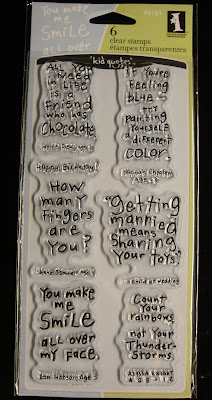 You make
me
Smile
all over
99381
6
clear stamps
étampes transparentes
"kid quotes"
All You
Need
in Life
is a
Friend
who has
Chocolate
Happy Birthday!
How
many
Fingers
are
You?
You make
me
Smile
all over
my Face.
Age 3
If You're
Feeling
blue
try
Painting
Yourself
a different
color.
"Getting
married
means
Sharing
your toys."
Count
Your
rainbows,
not Your
Thunder-
Storms.
Alyssa Knight
Age 12